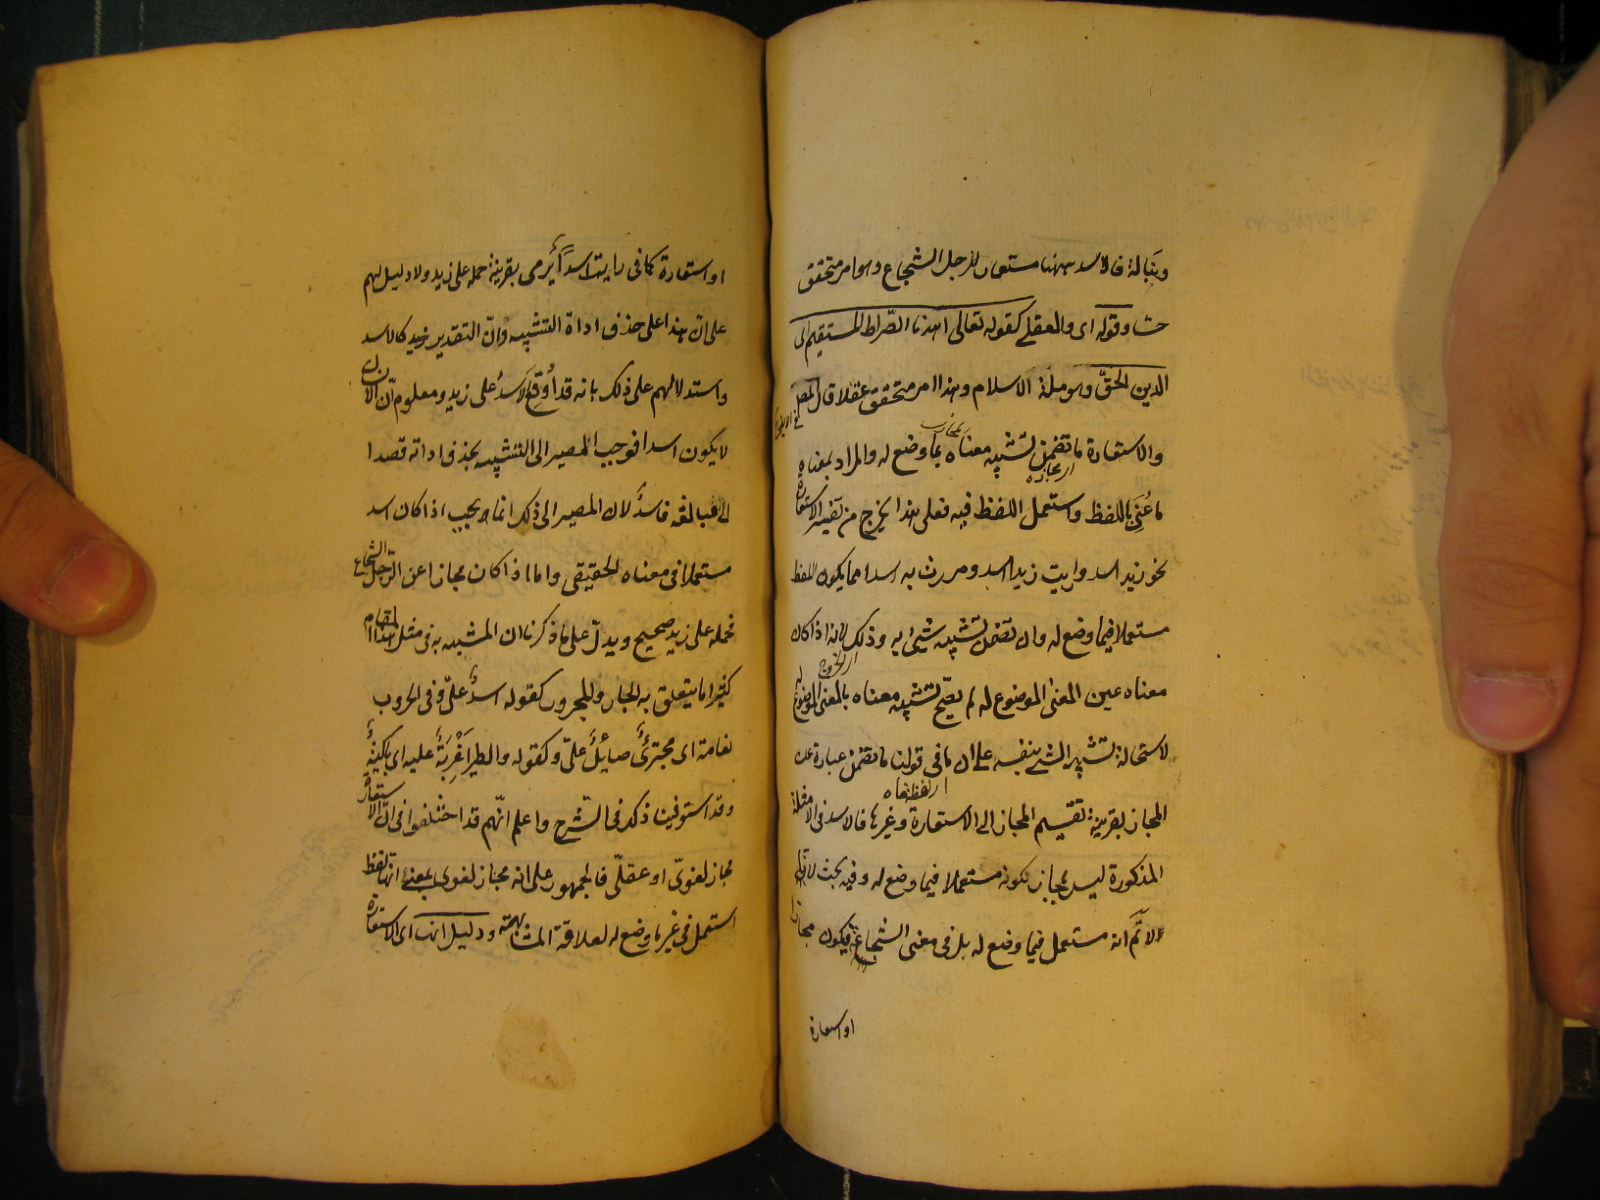 ونبالة فالاسد ههنا مستعار للرجل الشجاع وهو امر متحقق
حسّا وقوله اى والعقلى كقوله تعالى اهدنا الصّراط المستقيم اى
الدين الحقّ وهو ملة الاسلام وهذا امر متحقق عقلا قال المص
فى الايضاح
والاستعارة ما تضمن تشبيه معناه بما وضع له والمراد بمعناه
ما عُنى باللفظ واستعمل اللفظ فيه فعلى هذا يخرج من تفسير الاستعارة
نحو زيد اسد ورايت زيدا اسدا ومررت به اسدا مما يكون اللفظ
مستعملا فيما وضع له وان تضمن تشبيه شئ به وذلك لانه اذا كان
اى الخروج
معناه عين المعنى الموضوع له لم يصحّ تشبيه معناه بالمعنى الموضوع له
لاستحالة تشبيه الشئ بنفسه على ان ما فى قولنا ما تضمن عبارة عن
المجاز بقرينة تقسيم المجاز الى الاستعارة وغيرها فالاسد فى الامثلة
المذكورة ليس بمجاز لكونه مستعملا فيما وضع له وفيه بحث لانا
لا نّم انه مستعمل فيما وضع له بل فى معنى الشجاع فيكون مجازا
او استعارة
او استعارة كما فى رايت اسدًا يرمى بقرينة حمله على زيد ولا دليل لهم
على انّ هذا على حذف اداة التشبيه وانّ التقدير زيد كالاسد
واستدلالهم على ذلك بانه قد اُوقع الاسدُ على زيد ومعلوم انّ الانسان
لا يكون اسدا فوجب المصير الى التشبيه بحذف اداته قصدا
الى المبالغة فاسدٌ لان المصير الى ذلك انما يجب اذا كان اسد
مستعملا فى معناه الحقيقى واما اذا كان مجازا عن الرّجل الشجاع
فحمله على زيد صحيح ويدلّ على ما ذكرنا ان المشبه به فى مثل هذا المقام
كثيرا ما يتعلق به الجار والمجرور كقوله اسدٌ علىّ وفى الحروب
نعامة اى مجترئٌ صائلٌ علىّ وكقوله والطير اَغْرِبَةٌ عليه اى باكيةٌ
وقد استوفينا ذلك فى الشّرح واعلم انّهم قد اختلفوا فى انّ الاستعارة
مجاز لغوىّ او عقلىّ فالجمهور على انه مجاز لغوى بمعنى انها لفظ
استعمل فى غير ما وضع له لعلاقة المشابهة ودليل انها اى الاستعارة